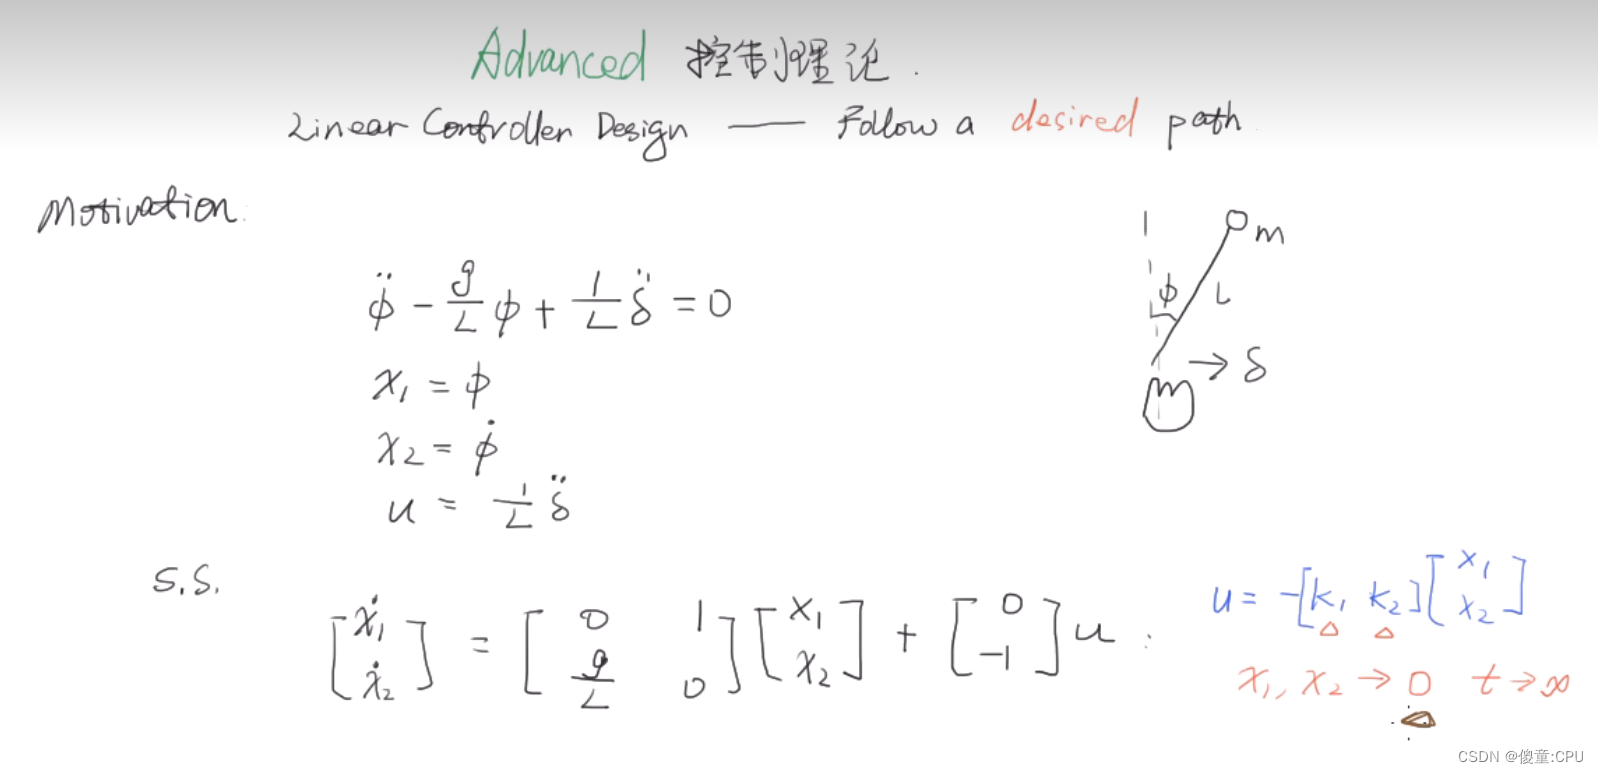 Advanced 控制理论.
Linear Controller Design —— Follow a desired path
Motivation:
φ̈ - g/L φ + 1/L δ̈ = 0
x₁ = φ
x₂ = φ̇
u = 1/L δ̈
m
φ
L
→ δ
m
S.S.
[ẋ₁ ẋ₂] = [0 1; g/L 0] [x₁ x₂] + [0 -1] u :
u = -[k₁ k₂] [x₁ x₂]
x₁, x₂ → 0 t → ∞
CSDN @傻童:CPU